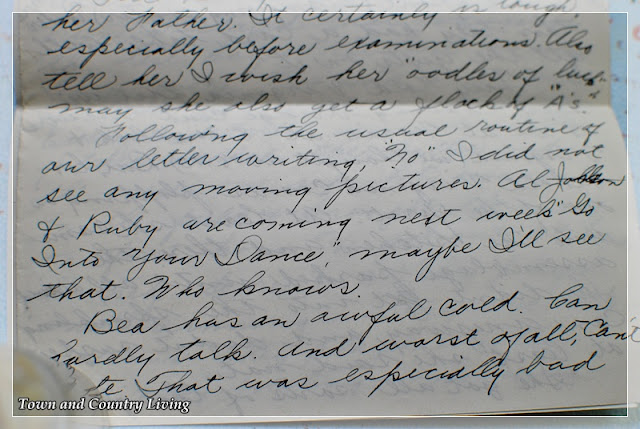 her Father. It certainly is tough,
especially before examinations. Also
tell her I wish her "oodles of luck"
may she also get a flock of "A's."
Following the usual routine of
our letter writing, "No" I did not
see any moving pictures. Al Jolson
& Ruby are coming next week "Go
Into Your Dance," maybe I'll see
that. Who knows.
Bea has an awful cold. Can
hardly talk. And worst of all, Can't
That was especially bad
Town and Country Living